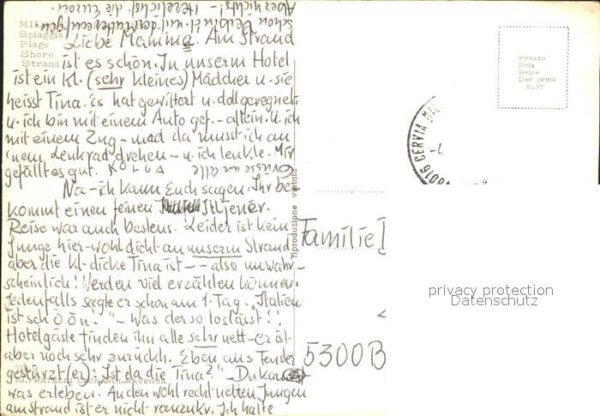 Aber nichts! – Herzlichst die Euren
schon
MIL
Spiaggia
Plage
Shore
Strand
Liebe Mamma. Am Strand
ist es schön. In unserm Hotel
ist ein kl. (sehr kleines) Mädchen u. sie
heisst Tina. es hat gewittert u. doll geregnet
u. ich bin mit einem Auto gef. – allein. u. ich
mit einem Zug – und da musst ich an
'nem Lenkrad drehen – u. ich lenkte. Mir
gefällt es gut. Grüsse an alle
Na – ich kann Euch sagen. Ihr be-
kommt einen feinen Itljener.
Reise war auch bestens. Leider ist kein
Junge hier – wohl dicht an unserm Strand
aber die kl. dicke Tina ist – – also unwahr-
scheinlich! Werden viel erzählen können.
Jedenfalls sagte er schon am 1. Tag. "Italien
ist schöön!" – Was der so loslässt!!
Hotelgäste finden ihn alle sehr nett – er ist
aber noch sehr zurückh. Eben ans Fenster
gestürzt (er): Ist da die Tina?" – Du kannst
was erleben. An den wohl recht netten Jungen
am Strand ist er nicht ranzukr. Ich halte
Prezzo
Prix
Price
Der preis
L.35
CERVIA
riproduzione vietata
Familie
5300 B
privacy protection
Datenschutz